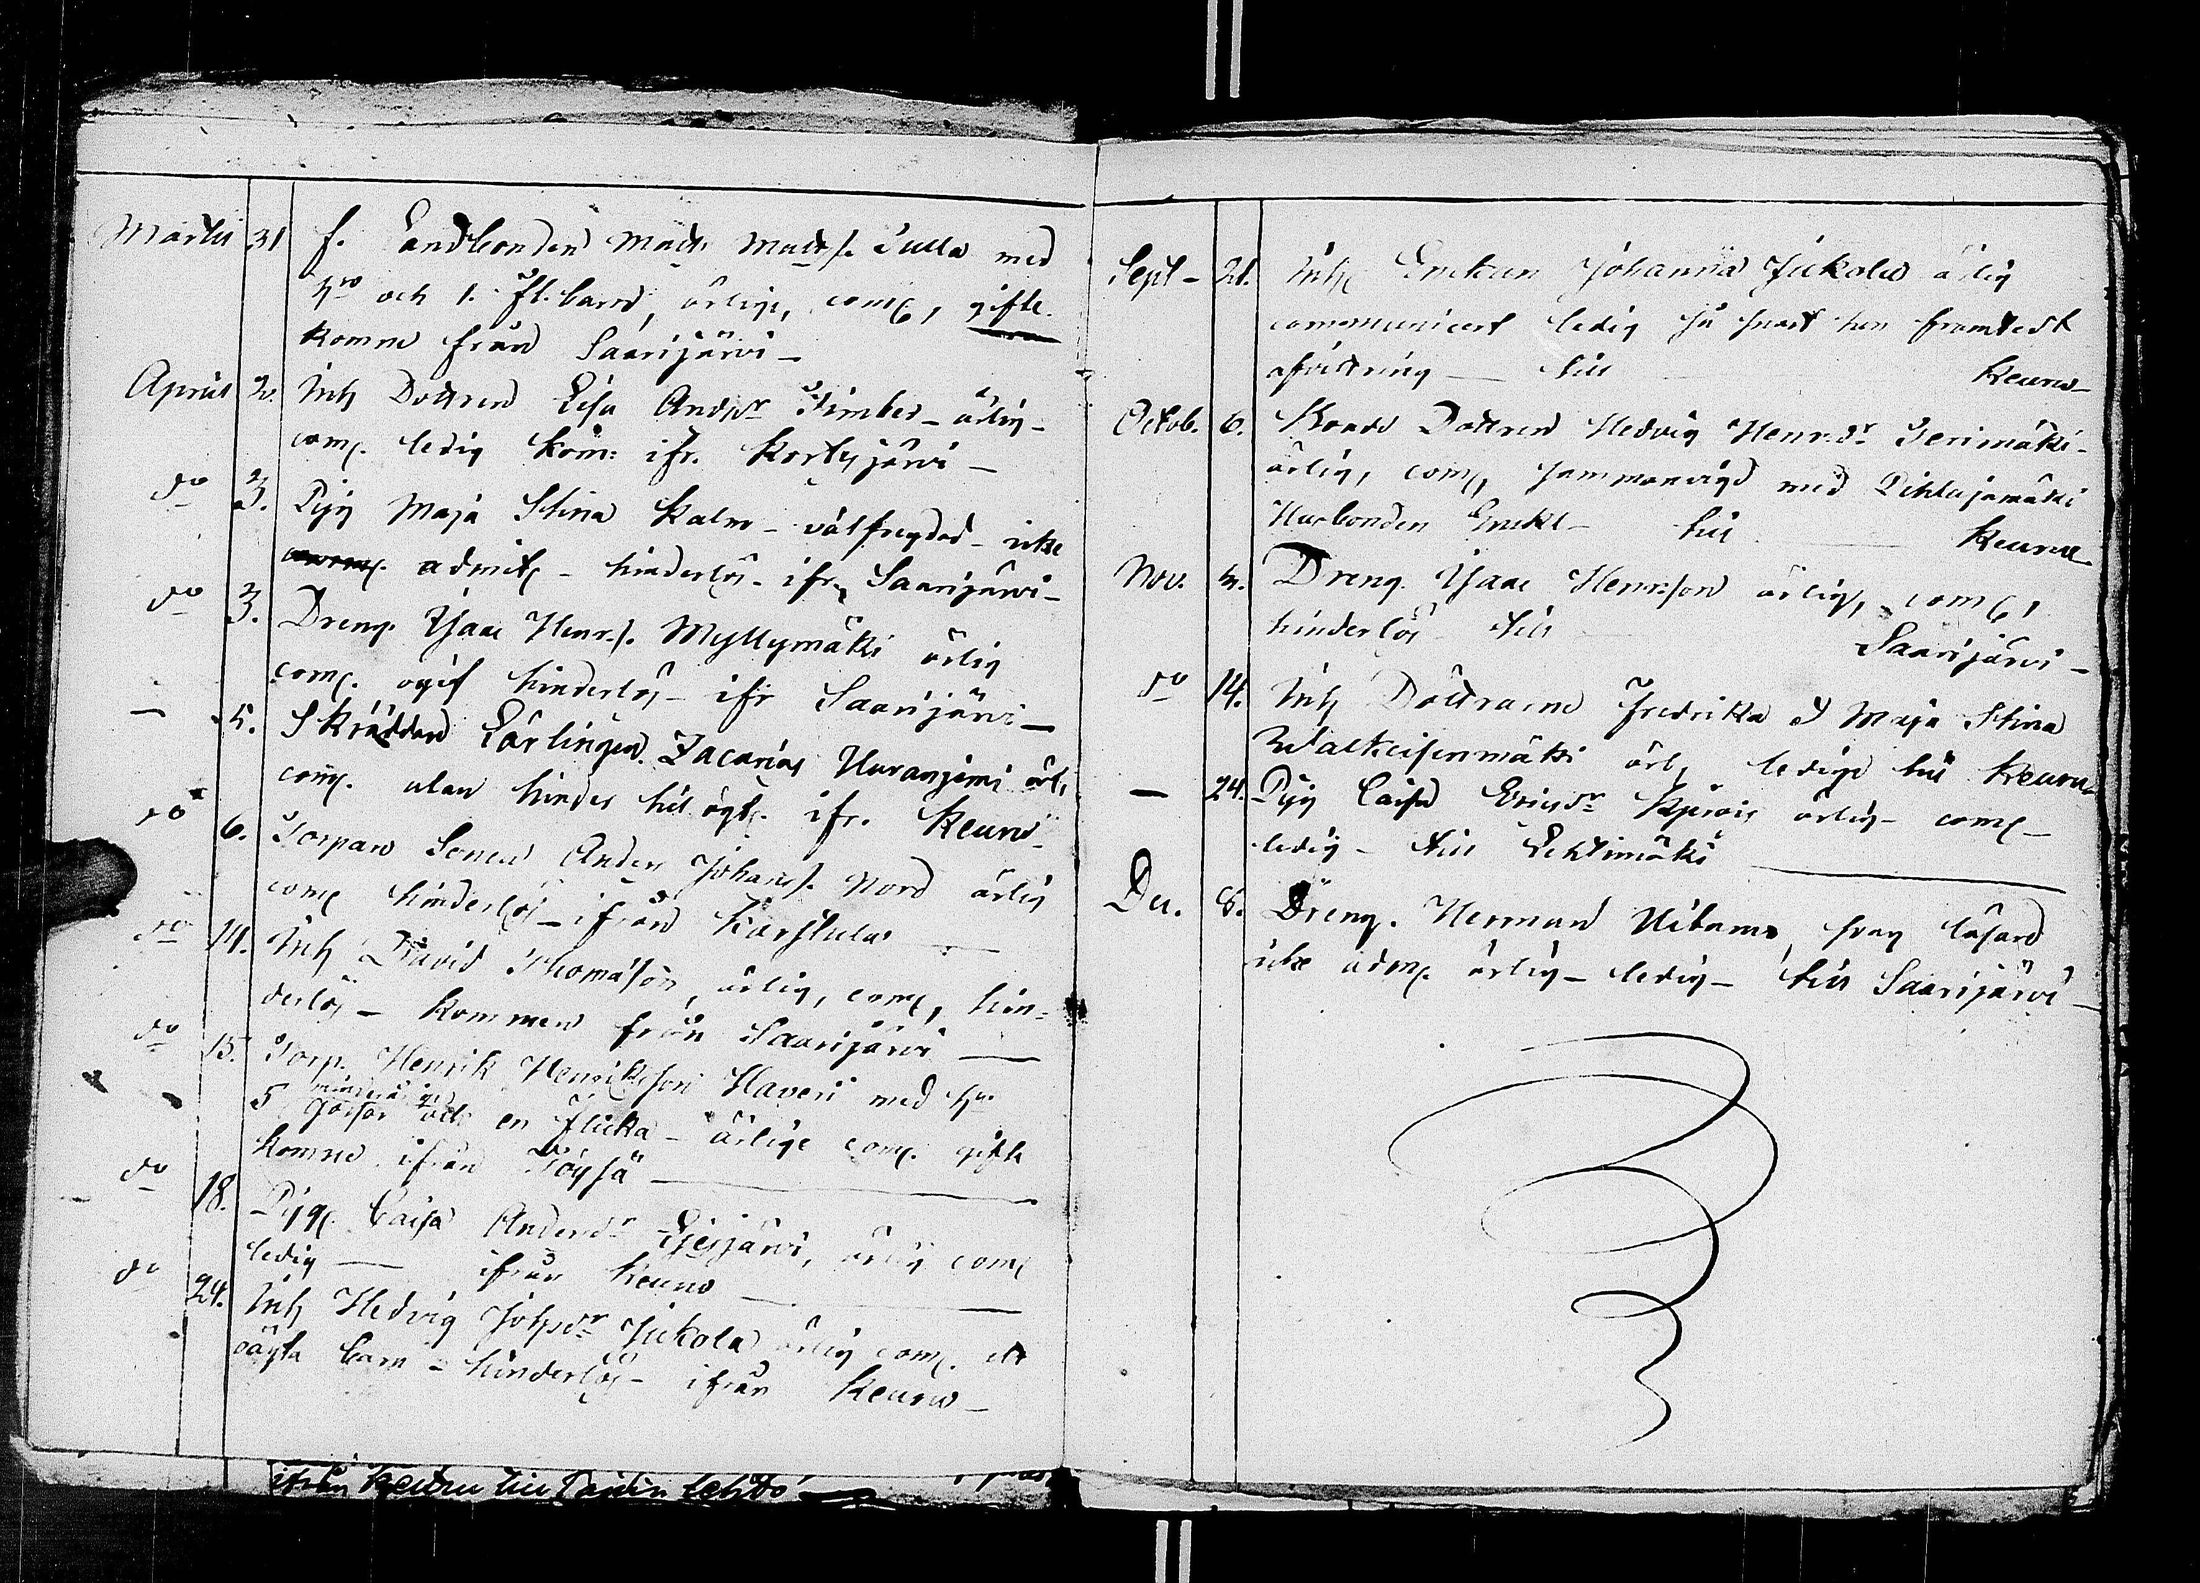 Martii 31 f. Landbonden Matts Matts. Tulla med
h:o och 1. Fl. barn, ärlige, com, gifte.
komne från Saarijärvi –
Aprill 2. Inh Dottren Lisa Andsdr Timber – ärlig –
com. ledig kom: ifr. Kortesjärvi –
do 3. Pig Maja Stina Kalm – välfregdad – icke
admit – hinderlös – ifr. Saarijärvi –
do 3. Dreng. Isaac Henr. s. Myllymäki ärlig
com. ogif hinderlös – ifr Saarijärvi –
– 5. Skräddar Lärlingen Zacarias Huranjemi ärl,
com. utan hinder till ägt. ifr. Keuru –
do 6. Torpare Sonen Anders Johans s. Nord ärlig
com hinderlös – ifrån Karstula –
do 14. Inh David Thomasson, ärlig, com, hin=
derlös – kommen från Saarijärvi –
do 15. Torp. Henrik Henrikson Haveri med h:u
5 minderårige gossar och en flicka – ärlige com. gifte
komne ifrån Töysä –
do 18. Pig Caisa Andersdr ärlig com
ledig – ifrån Keuru –
do 24. Inh Hedvig Johsdr Jukola ärlig com. ett
oägta barn – hinderlös – ifrån Keuru –
ifrån Keuru till
Sept – 21. Inh Enckan Johanna Jukola ärlig
communicert ledig så snart hon framtedt
afvittring – till Keuru –
Octob. 6. Bonde Dottren Hedvig Henrsdr Terimäki –
ärlig, com, sammanvigd med Pihlajamäki
Husbonden Enckl – till Keuru –
Nov. 4. Dreng. Isaac Henrson ärlig, com,
hinderlös till Saarijärvi –
do 14. Inh Döttrarne Fredrika & Maja Stina
Walkeisenmäki ärl, ledige till Keuru –
– 24. Pig Caisa Ericsdr ärlig – com –
ledig – till Lehtimäki –
Dec. 8. Dreng. Herman svag läsare
icke adm. ärlig – ledig – till Saarijärvi –